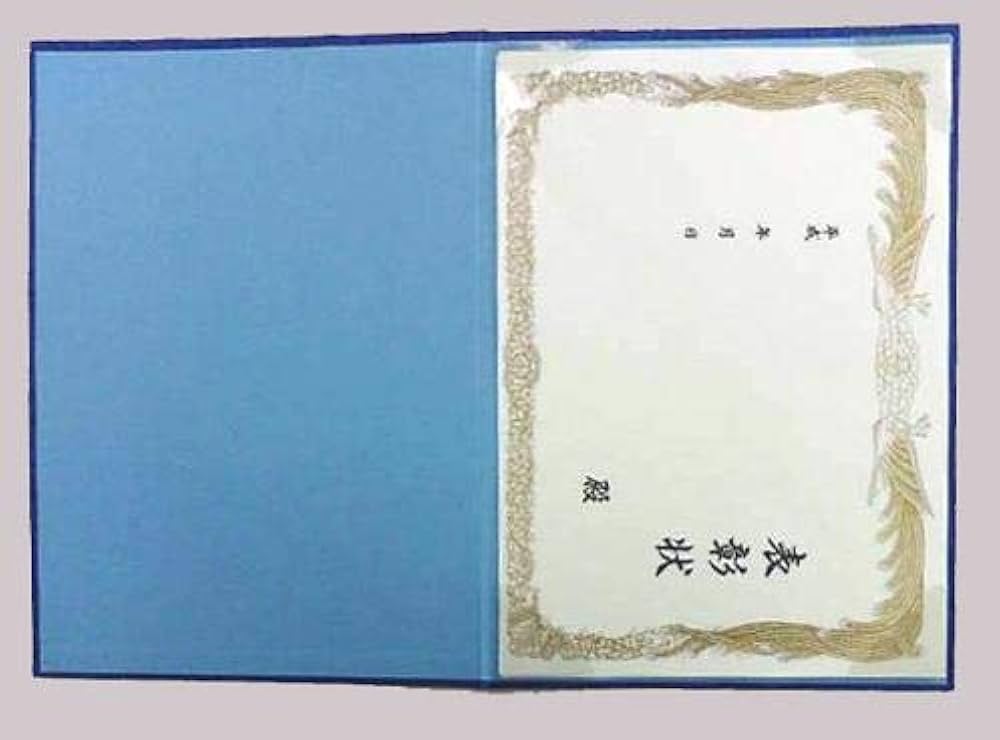 表彰状
殿
平成 年 月 日